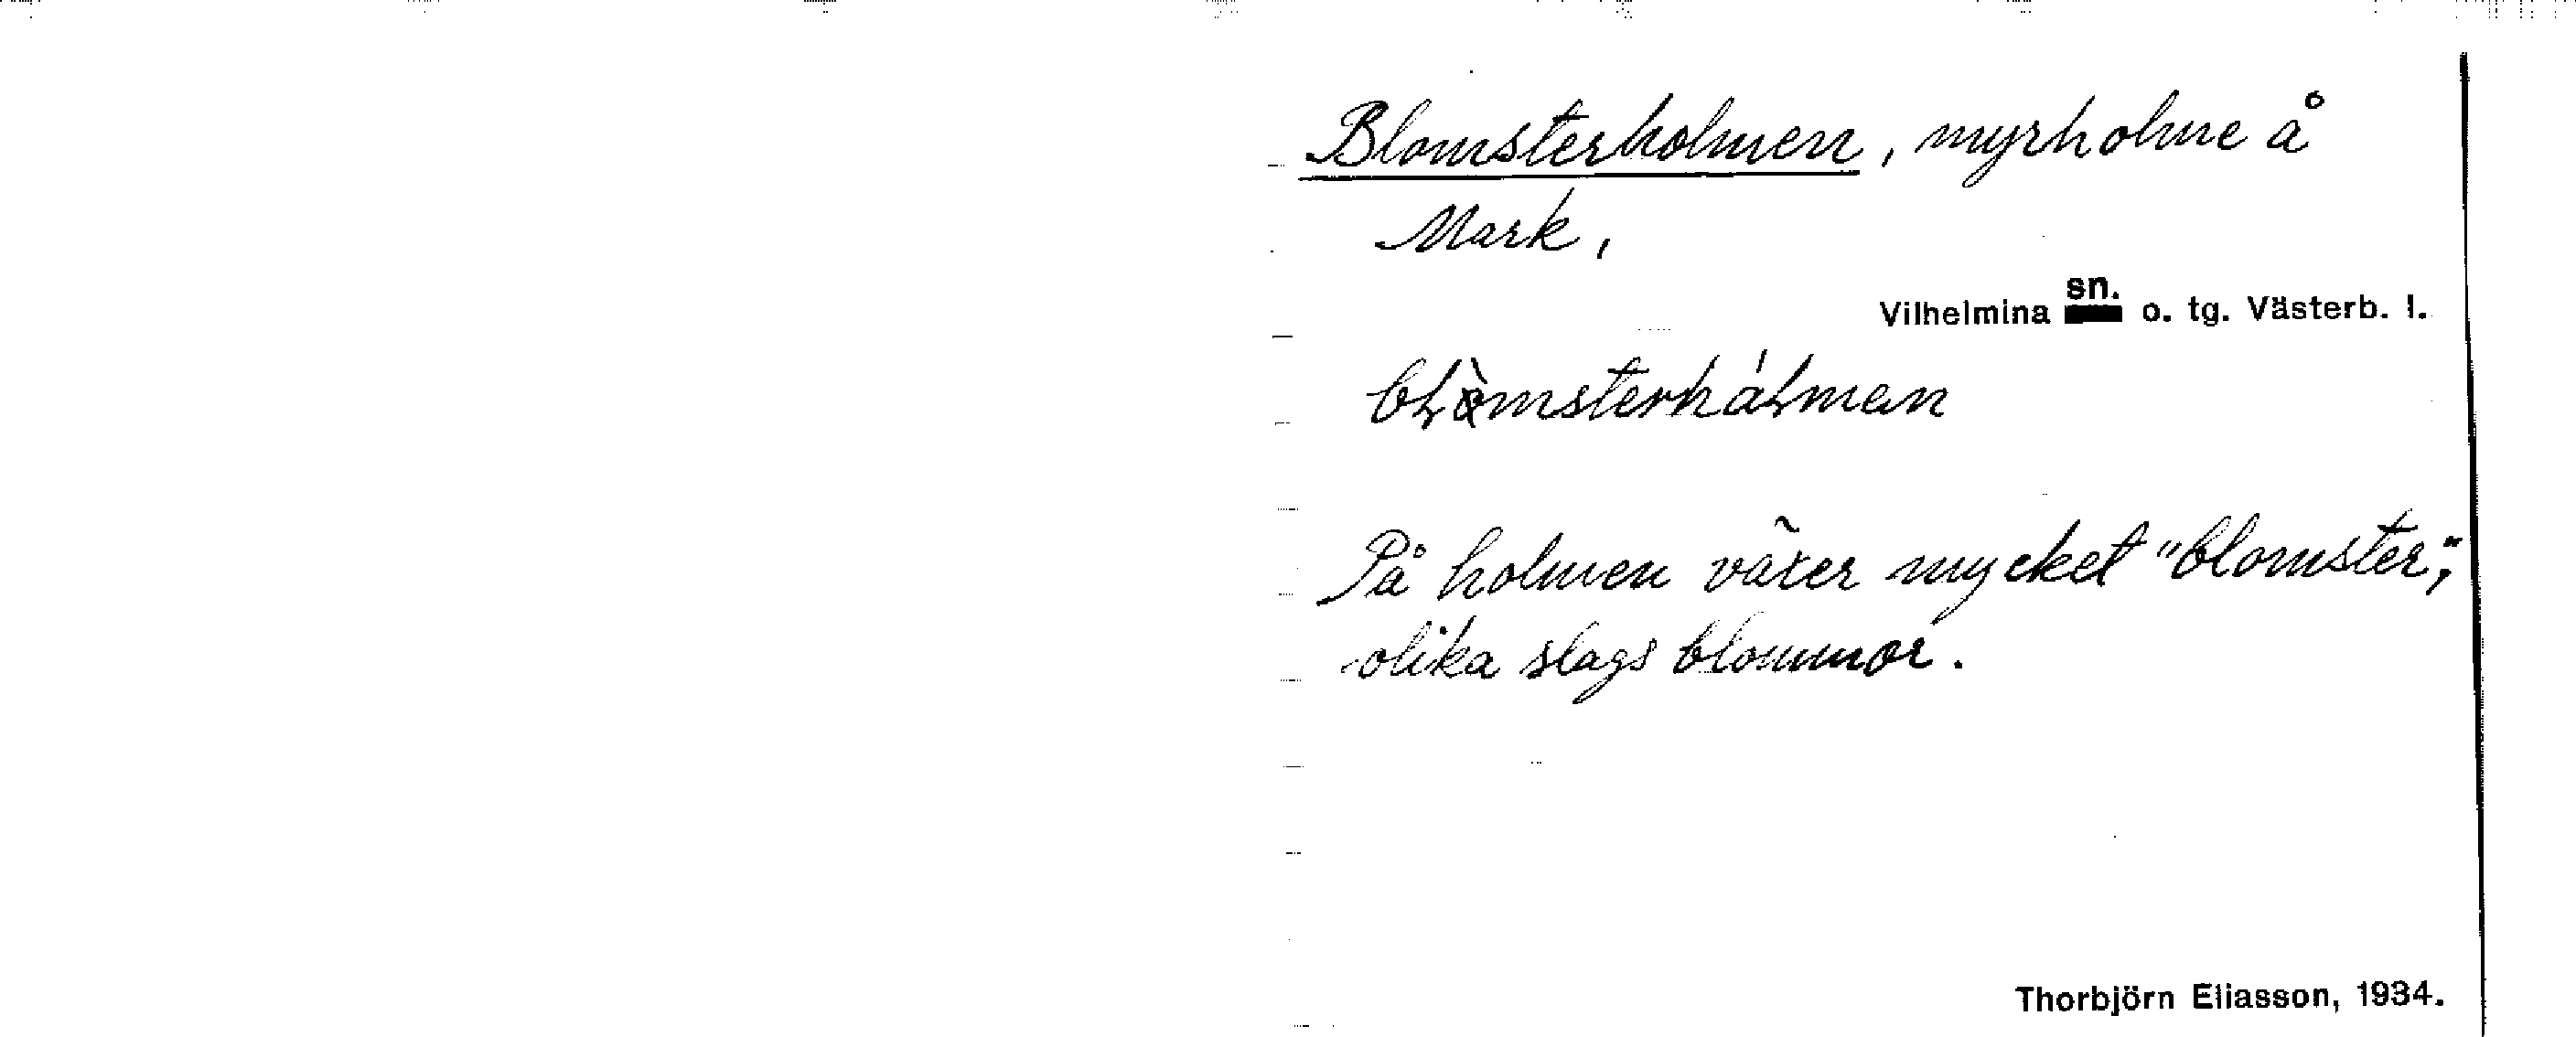 Blomsterholmen, myrholme å
Mark,
Vilhelmina sn. o. tg. Västerb. l.
På holmen växer mycket "blomster",
olika slags blommor.
Thorbjörn Eliasson, 1934.